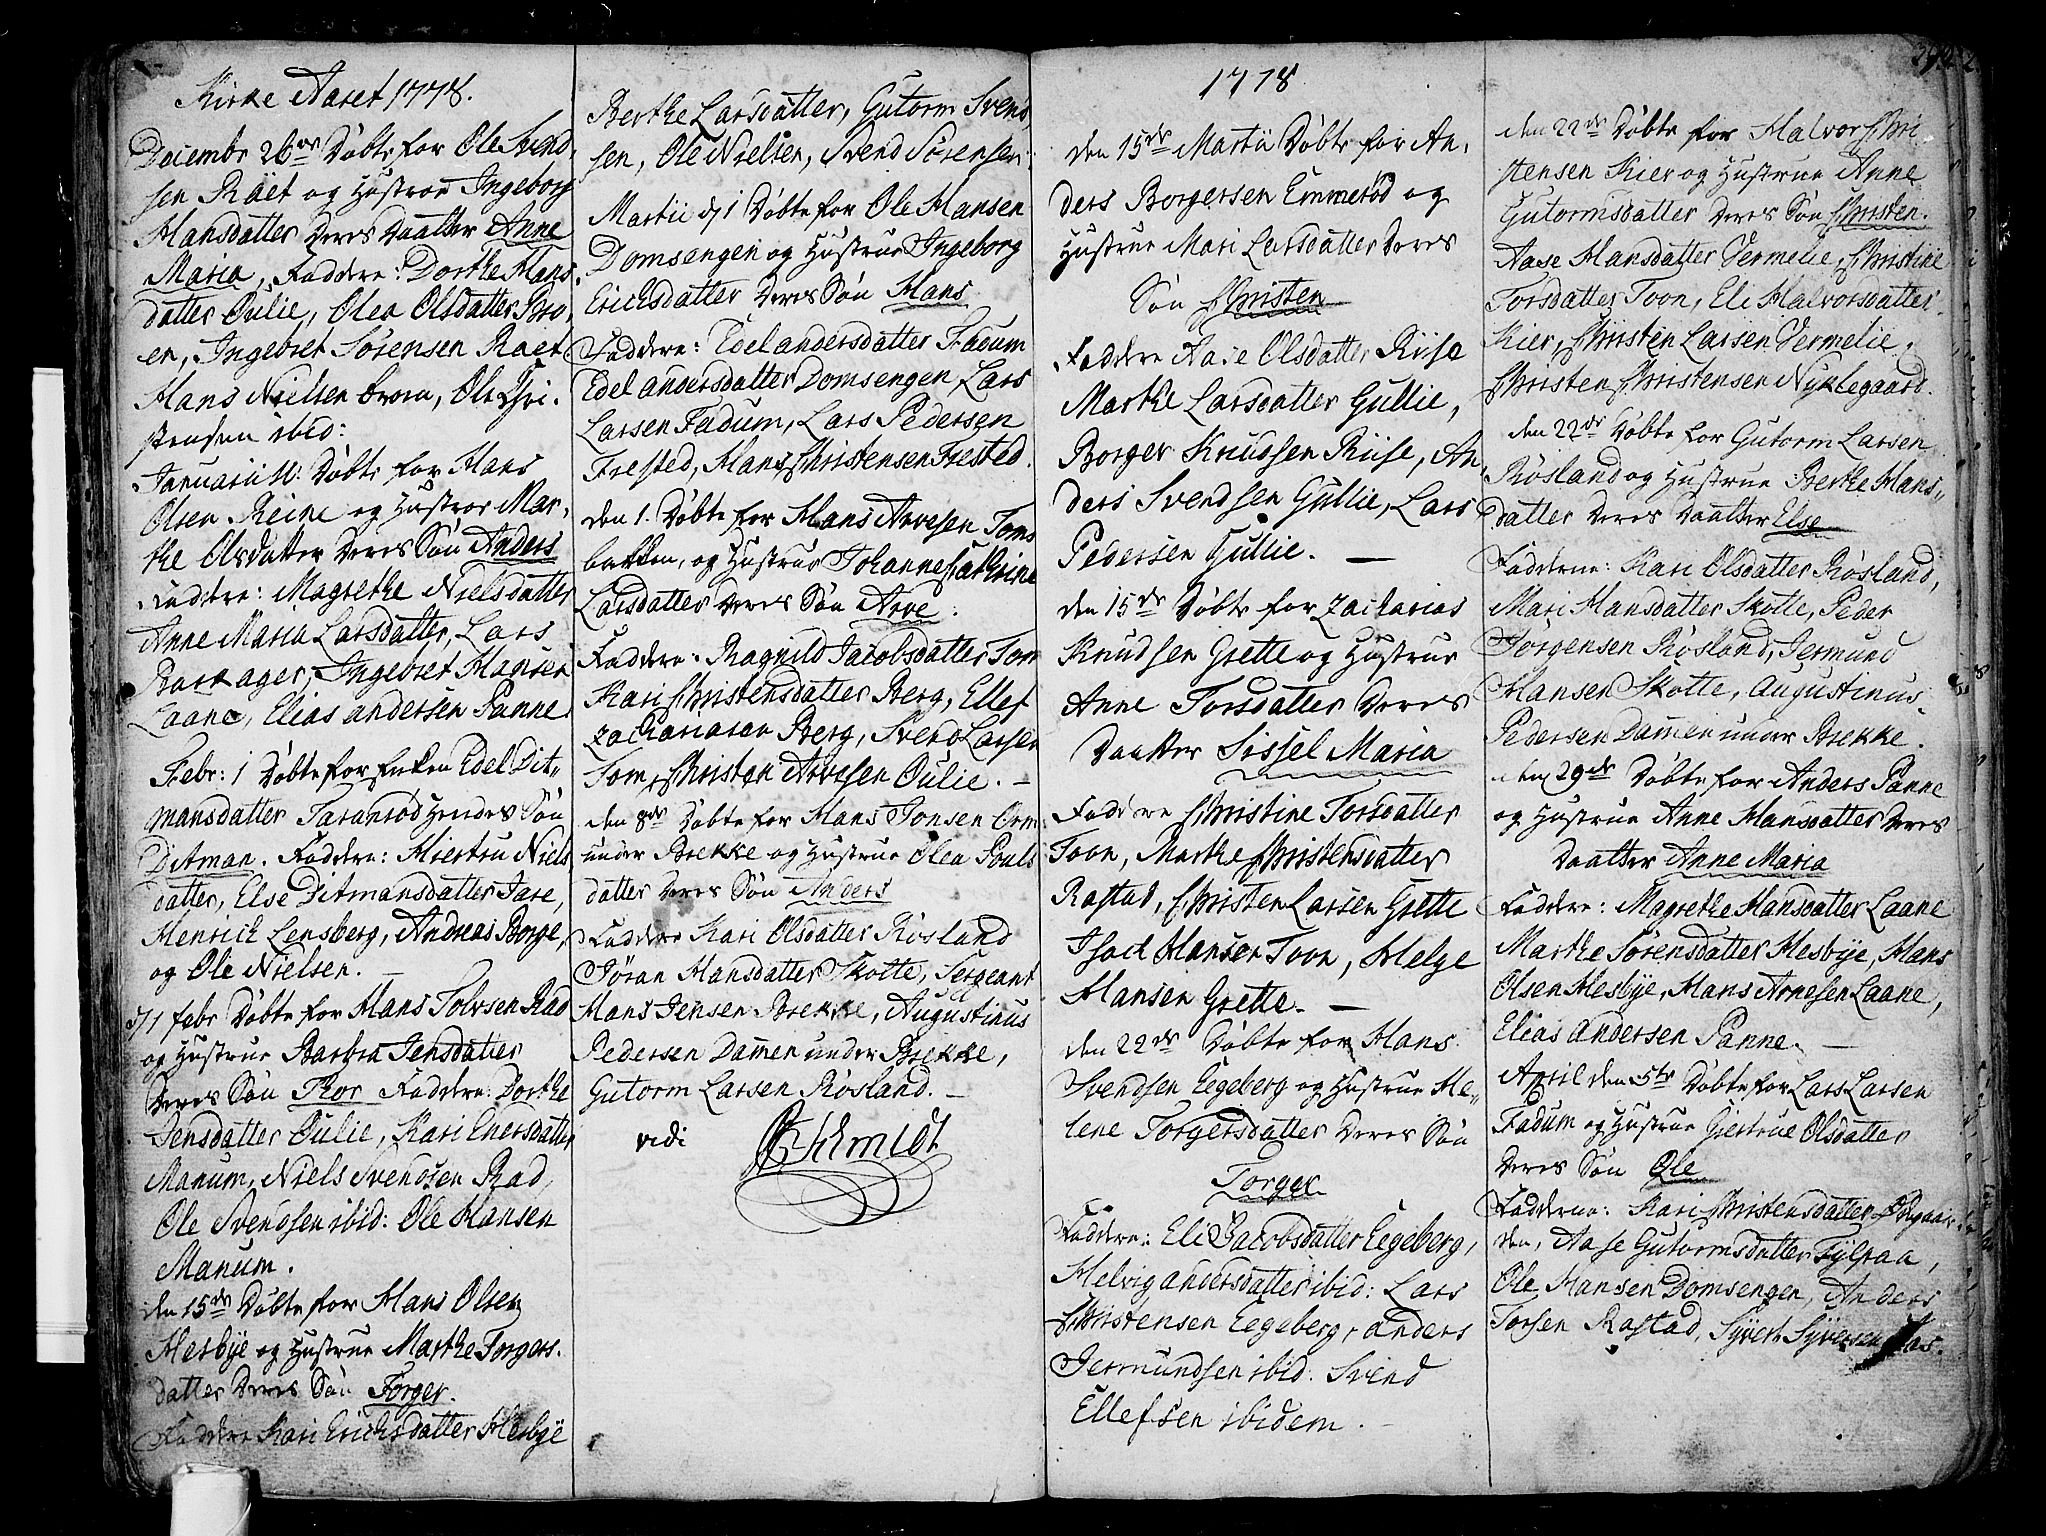 Kirke Aaret 1778.
Decembr 26de Døbte for Ole Svend,
sen Räet og Hustroe Ingeborg
Hansdatter Deres Daatter Anne
Maria, Faddere: Dorthe Hans
datter Oulie, Olea Olsdatter Bro,
en, Ingebret Sørensen Raet
Hans Nielsen Broen, Ole Chri.
stensen ibid:
Januarii 11. Døbte for Hans
Olsen Reine og Hustroe Mar,
the Olsdatter Deres Søn Anders
Faddere: Magrethe Nielsdatter
Anne Maria Larsdatter, Lars
Rackager, Ingebret Hansen
Laane, Elias andersen Panne
Febr: 1 Døbte for Enken Edel Dit-
mansdatter Taranrød Hendes Søn
Ditman. Faddere: Hiertru Niels
datter, Else Ditmansdatter Jare,
Henrich Lensberg, Andreas Borge,
og Ole Nielsen.
d/1 febr Døbte for Hans Tolvsen Rad
og Hustrue Barbra Jensdatter
Deres Søn Thor Faddere: Dorthe
Jensdatter Oulie, Kari Enersdatter
Manum, Niels Svendsen Rad,
Ole Svendsen ibid: Ole Hansen
Manum.
den 15de Døbte for Hans Olsen
Hesbÿe og Hustrue Marthe Torgers.
datter Deres Søn Torger.
Faddere Kari Erichsdatter Hesbÿe
Berthe Larsdatter, Gutorm Svend,
sen, Ole Nielsen, Svend Sørensen:
Martii d/1 Døbte for Ole Hansen
Domsengen og Hustrue Ingeborg
Erichsdatter Deres Søn Hans
Faddere: Edel andersdatter Fadum
Edel andersdatter Domsengen, Lars
Larsen Fadum, Lars Pedersen
Frested, Hans Christensen Frested.
den 1. Døbte for Hans Arvesen Toms
bakken, og Hustrue Johanne Cathrine
Larsdatter Deres Søn Arve:
Faddere: Ragnild Jacobsdatter Tom
Kari Christensdatter Berg, Ellef
Zachariasen Berg, Svend Larsen
Tom, Christen Arvesen Oulie. -
den 8de Døbte for Hans Jonsen Orm
under Brekke og Hustrue Olea Pouls
datter Deres Søn Anders
Faddere Kari Olsdatter Røsland
Jøran Hansdatter Skotte, Sergeant
Hans Jensen Brekke, Augustinus
Pedersen Damen under Brekke,
Gutorm Larsen Røsland. -
vidi Schmidt
1778
392
den 15de Martii Døbte for An,
ders Borgersen Emmerød og
Hustrue Mari Larsdatter Deres
Søn Christen
Faddere Aase Olsdatter Riise
Marthe Larsdatter Gullie,
Borger Knudsen Riise, An,
ders Svendsen Gullie, Lars
Pedersen Gullie. -
den 15de Døbte for Zacharias
Knudsen Grette og Hustrue
Anne Torsdatter Deres
Daatter Sissel Maria
Faddere Christine Torsdatter
Toon, Marthe Christensdatter
Rastad, Christen Larsen Grette
Isach Hansen Toon, Helge
Hansen Grette. -
den 22de Døbte for Hans
Svendsen Eegeberg og Hustrue He-
lene Torgersdatter Deres Søn
Torger
Faddere: Eli Jacobsdatter Eegeberg,
Helvig andersdatter ibid: Lars
Christensen Eegeberg, anders
Jermundsen ibid: Svend
Ellefsen ibidem.
den 22de Døbte for Halvor Chri
stensen Kier og Hustrue Anne
Gutormsdatter Deres Søn Christen.
Aase Hansdatter Vermelie, Christine
Torsdatter Toon, Eli Halvorsdatter
Kier, Christen Larsen Vermelie,
Christen Christensen Nyklegaard.
den 22de Døbte for Gutorm Larsen
Røsland og Hustrue Berthe Hans-
datter Deres Daatter Else
Fadderne: Kari Olsdatter Røsland,
Mari Hansdatter Skotte, Peder
Jørgensen Røsland, Jermund
Hansen Skotte, Augustinus
Pedersen Damen under Brekke.
den 29de Døbte for Anders Panne
og Hustrue Anne Hansdatter Deres
Daatter Anne Maria
Faddere: Magrethe Hansdatter Laane
Marthe Sørensdatter Hesbÿe, Hans
Olsen Hesbÿe, Hans Arnesen Laane,
Elias andersen Panne. -
April den 5te Døbte for Lars Larsen
Fadum og Hustrue Giertrue Olsdatter
Deres Søn Ole
Fadderne: Kari Christensdatter
den, Aase Gutormsdatter Fÿlpaa,
Ole Hansen Domsengen, Anders
Torsen Rastad, Sÿvert Sÿversen